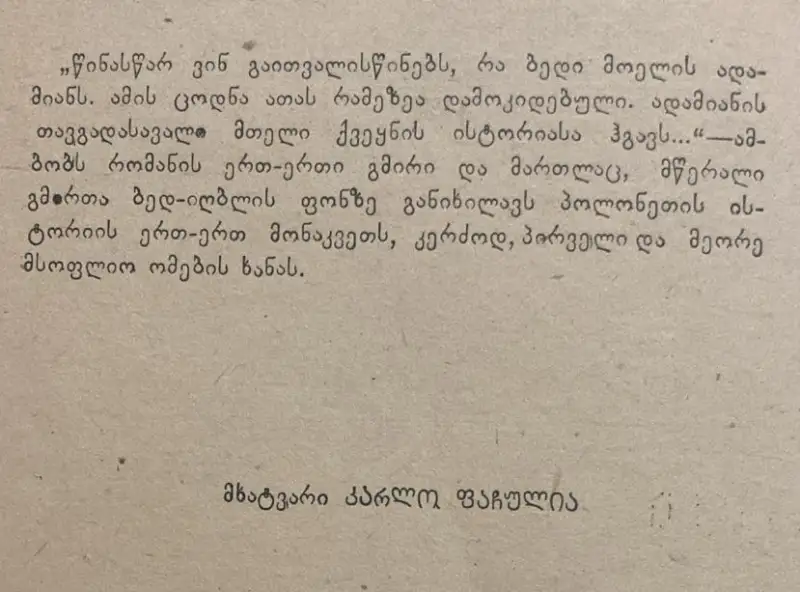 „წინასწარ ვინ გაითვალისწინებს, რა ბედი მოელის ადა-
მიანს. ამის ცოდნა ათას რამეზეა დამოკიდებული. ადამიანის
თავგადასავალი მთელი ქვეყნის ისტორიასა ჰგავს...“—ამ-
ბობს რომანის ერთ-ერთი გმირი და მართლაც, მწერალი
გმირთა ბედ-იღბლის ფონზე განიხილავს პოლონეთის ის-
ტორიის ერთ-ერთ მონაკვეთს, კერძოდ, პირველი და მეორე
მსოფლიო ომების ხანას.
მხატვარი კარლო ფაჩულია